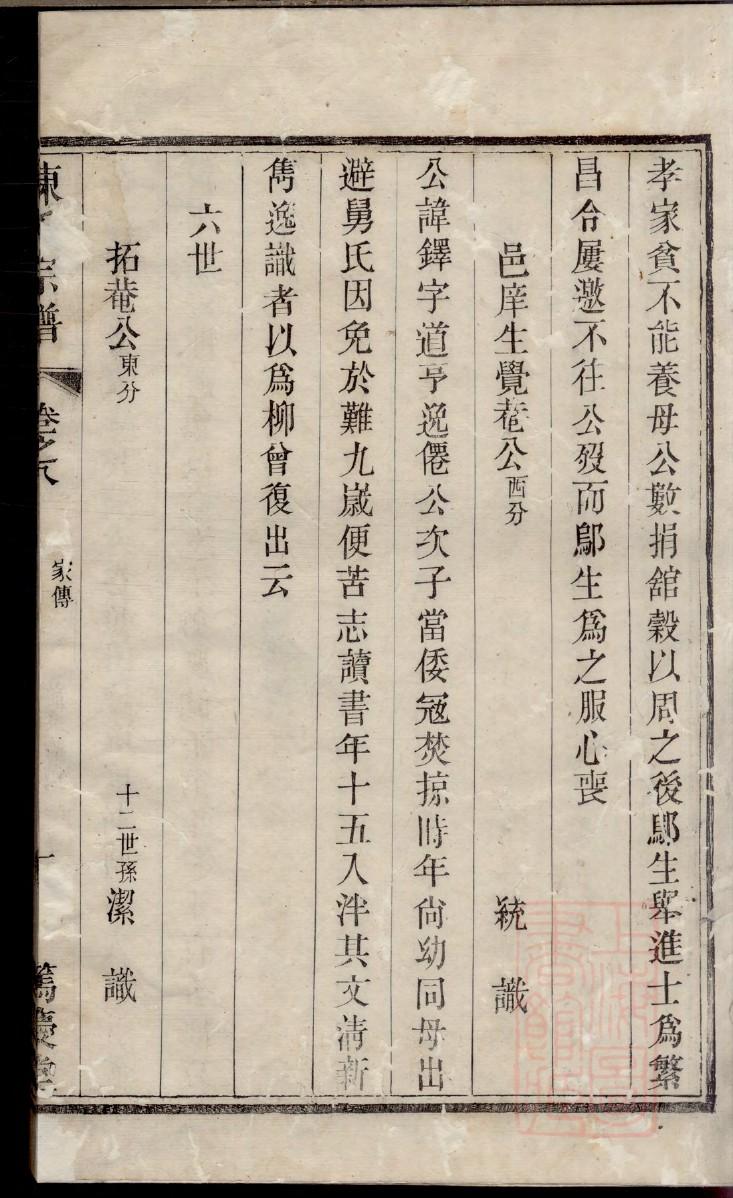 孝家貧不能養母公數捐舘穀以周之後鄔生舉進士爲繁
昌令屢邀不往公歿而鄔生爲之服心喪
邑庠生覺菴公西分 統 識
公諱鐸字道亨逸僊公次子當倭寇焚掠時年尙幼同母出
避舅氏因免於難九歲便苦志讀書年十五入泮其文淸新
雋逸識者以爲柳曾復出云
六世
拓菴公東分 十二世孫潔 識
宗譜 卷之八 家傳 十 篤慶堂